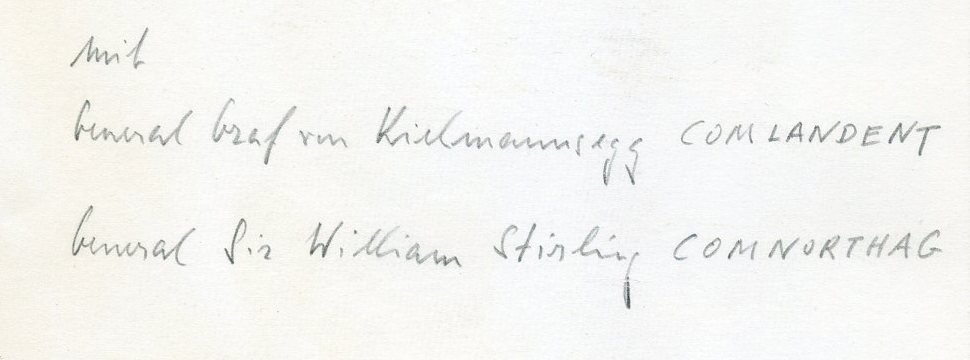 mit
General Graf von Kielmannsegg COMLANDENT
General Sir William Stirling COMNORTHAG